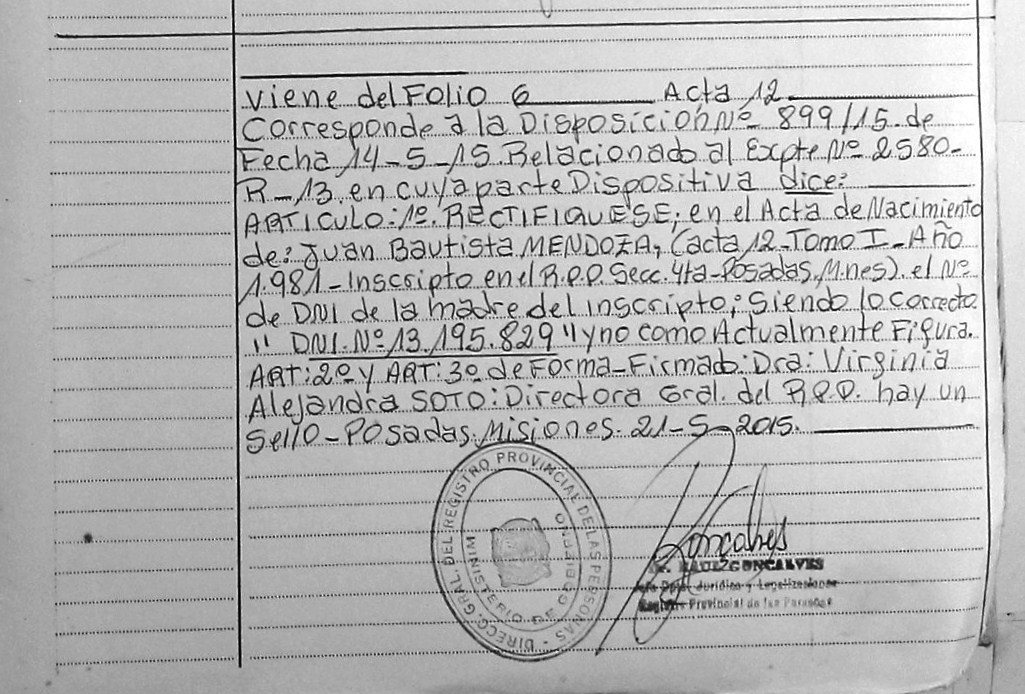 Viene del Folio 6 Acta 12.
Corresponde a la Disposición Nº 899/15. de
Fecha 14-5-15. Relacionado al Expte Nº 2580-
R-13. en cuya parte Dispositiva dice:
ARTICULO: 1º. RECTIFIQUESE; en el Acta de Nacimiento
de: Juan Bautista MENDOZA, (acta 12-Tomo I-Año
1.981-Inscripto en el R.P.P. Secc. 4ta-Posadas, M.nes). el Nº
de DNI de la madre del inscripto; siendo lo correcto
" DNI. Nº 13.195.829 " y no como Actualmente Figura.
ART: 2º y ART: 3º de Forma-Firmado: Dra: Virginia
Alejandra SOTO: Directora Gral. del R.P.P. hay un
Sello-Posadas. Misiones. 21-5-2015.
DIRECC. GRAL. DEL REGISTRO PROVINCIAL DE LAS PERSONAS -
MINISTERIO DE GOBIERNO
Gonçalves
RAUL GONCALVES
Jefe Dpto. Jurídico y Legalizaciones
Registro Provincial de las Personas